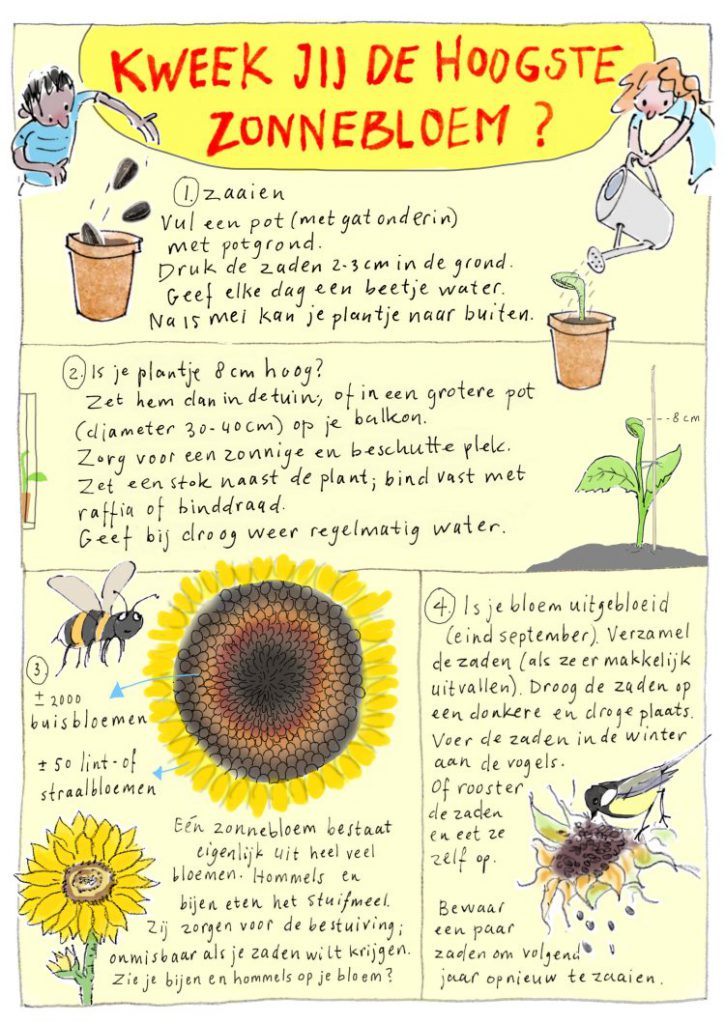 KWEEK JIJ DE HOOGSTE
ZONNEBLOEM ?
1. Zaaien
Vul een pot (met gat onderin)
met potgrond.
Druk de zaden 2-3 cm in de grond.
Geef elke dag een beetje water.
Na 15 mei kan je plantje naar buiten.
2. Is je plantje 8 cm hoog?
Zet hem dan in de tuin, of in een grotere pot
(diameter 30-40cm) op je balkon.
Zorg voor een zonnige en beschutte plek.
Zet een stok naast de plant; bind vast met
raffia of binddraad.
Geef bij droog weer regelmatig water.
8 cm
3
± 2000
buisbloemen
± 50 lint- of
straalbloemen
Eén zonnebloem bestaat
eigenlijk uit heel veel
bloemen. Hommels en
bijen eten het stuifmeel.
Zij zorgen voor de bestuiving;
onmisbaar als je zaden wilt krijgen.
Zie je bijen en hommels op je bloem?
4. Is je bloem uitgebloeid
(eind september). Verzamel
de zaden (als ze er makkelijk
uitvallen). Droog de zaden op
een donkere en droge plaats.
Voer de zaden in de winter
aan de vogels.
Of rooster
de zaden
en eet ze
zélf op.
Bewaar
een paar
zaden om volgend
jaar opnieuw te zaaien.